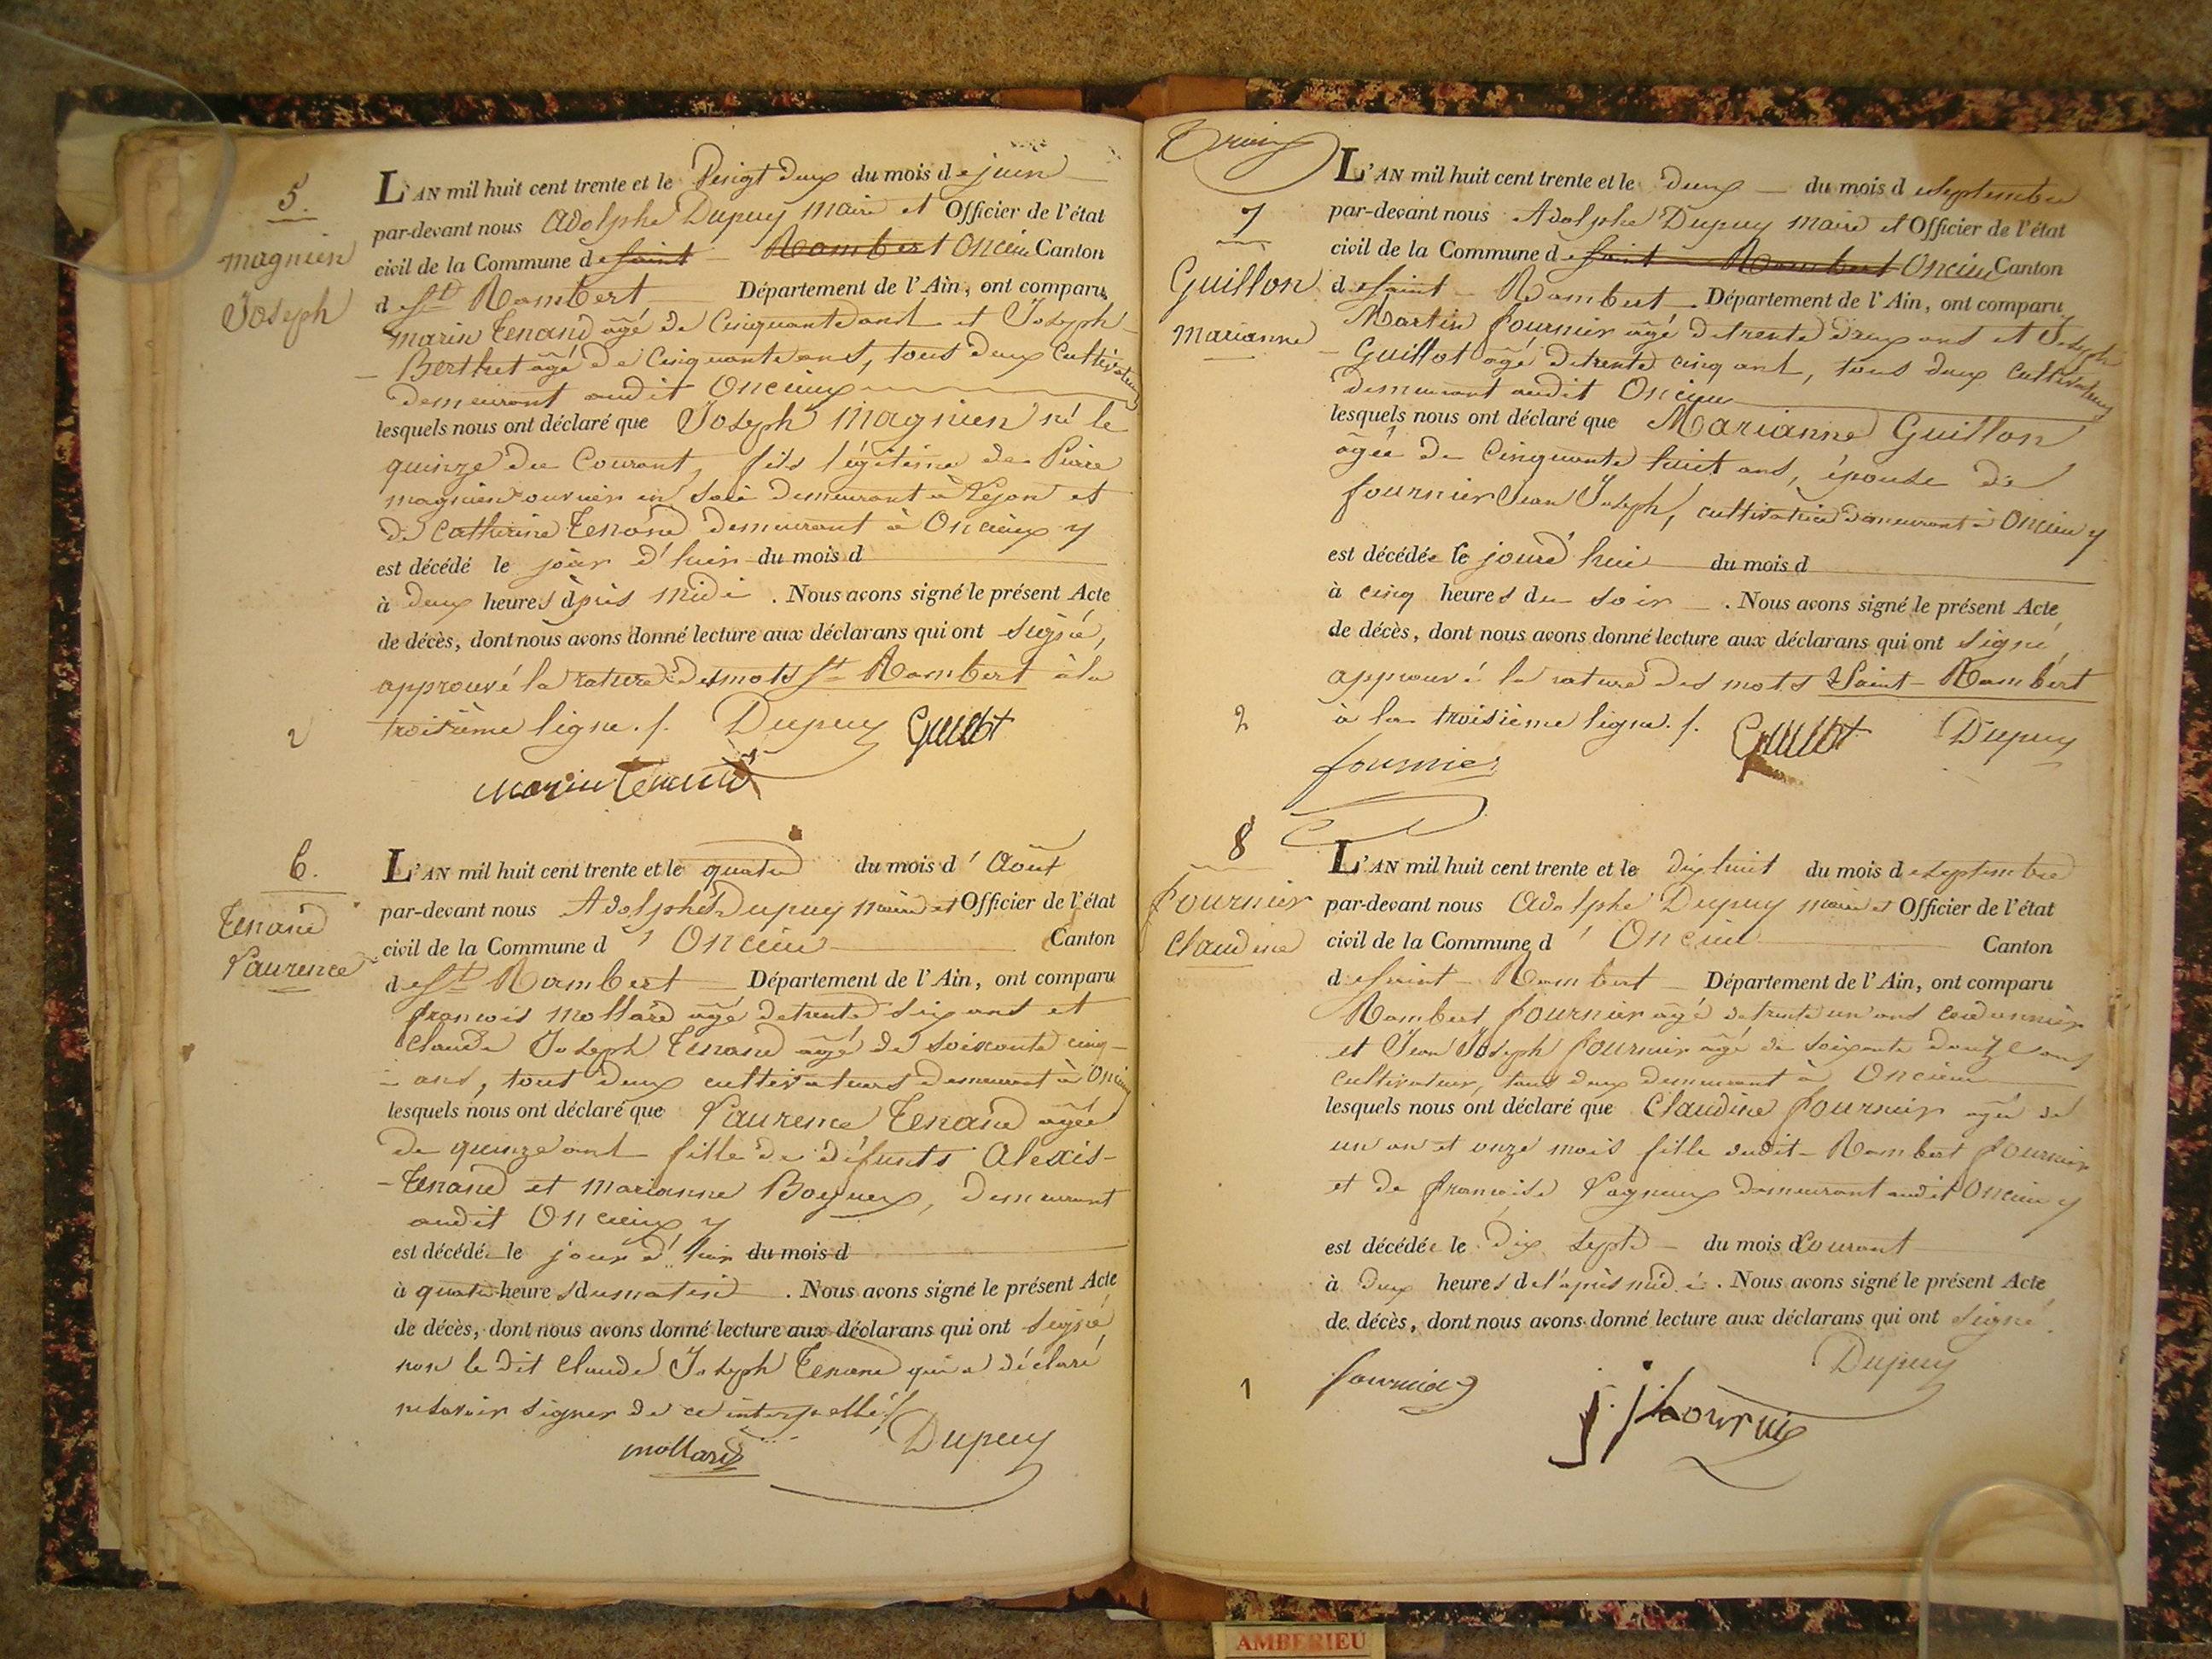 5.
magnien
Joseph
L'AN mil huit cent trente et le Vingt deux du mois de juin
par-devant nous Adolphe Dupuy maire et Officier de l'état
civil de la Commune de saint Rambert Oncieu Canton
de St Rambert Département de l'Ain, ont comparu
marin Tenand agé de Cinquante ans et Joseph
Berthet agé de Cinquante ans, tous deux Cultivateurs
demeurant audit Oncieux
lesquels nous ont déclaré que Joseph Magnien né le
quinze du Courant, fils légitime de Pierre
magnien ouvrier en soie demeurant à Lyon et
de Catherine Tenand demeurant à Oncieux y
est décédé le jour d'hier du mois d
à deux heures après midi. Nous avons signé le présent Acte
de décès, dont nous avons donné lecture aux déclarans qui ont signé,
approuvé la rature des mots St Rambert à la
troisième ligne ./. Dupuy Guillot
2
marin Tenand
6.
Tenand
Laurence
L'AN mil huit cent trente et le quatre du mois d'Août
par-devant nous Adolphe Dupuy maire et Officier de l'état
civil de la Commune d'Oncieu Canton
de St Rambert Département de l'Ain, ont comparu
francois Mollard agé de trente six ans et
Claude Joseph Tenand agé de soixante cinq
ans, tout deux cultivateurs demeurant à Oncieu
lesquels nous ont déclaré que Laurence Tenand agée
de quinze ans fille de défunts Alexis
Tenand et marianne Bogueux, demeurant
audit Oncieux y
est décédée le jour d'hier du mois d
à quatre heures du matin. Nous avons signé le présent Acte
de décès, dont nous avons donné lecture aux déclarans qui ont signé,
non le dit Claude Joseph Tenand qui a déclaré
ne savoir signer de ce interpellé ./.
mollard Dupuy
7
Guillon
Marianne
L'AN mil huit cent trente et le deux du mois de septembre
par-devant nous Adolphe Dupuy maire et Officier de l'état
civil de la Commune de saint Rambert Oncieu Canton
de saint Rambert Département de l'Ain, ont comparu
Martin fournier agé de trente deux ans et Joseph
Guillot agé de trente cinq ans, tous deux Cultivateurs
demeurant audit Oncieu
lesquels nous ont déclaré que Marianne Guillon
agée de Cinquante huit ans, épouse de
fournier Jean Joseph, cultivatrice demeurant à Oncieu y
est décédée le jourd'hui du mois d
à cinq heures du soir. Nous avons signé le présent Acte
de décès, dont nous avons donné lecture aux déclarans qui ont signé,
approuvé la rature des mots Saint-Rambert
à la troisième ligne ./. Guillot Dupuy
2
fournier
8
fournier
Claudine
L'AN mil huit cent trente et le dix huit du mois de septembre
par-devant nous Adolphe Dupuy maire et Officier de l'état
civil de la Commune d'Oncieu Canton
de saint Rambert Département de l'Ain, ont comparu
Rambert fournier agé de trente un ans cordonnier
et Jean Joseph fournier agé de soixante douze ans
cultivateur, tous deux demeurant à Oncieu
lesquels nous ont déclaré que Claudine fournier agée de
un an et onze mois fille dudit Rambert fournier
et de françoise Vagneux demeurant audit Oncieu y
est décédée le dix sept du mois d Courant
à deux heures de l'après midi. Nous avons signé le présent Acte
de décès, dont nous avons donné lecture aux déclarans qui ont signé.
Dupuy
1
fournier
AMBERIEU